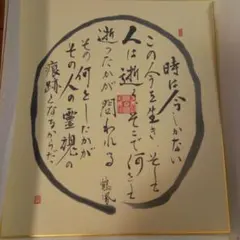 時は今しかない
この今を生き、そして
人は逝く そこで何をして
逝ったかが問われる
その何をしたかが
その人の霊魂の
痕跡となるからだ